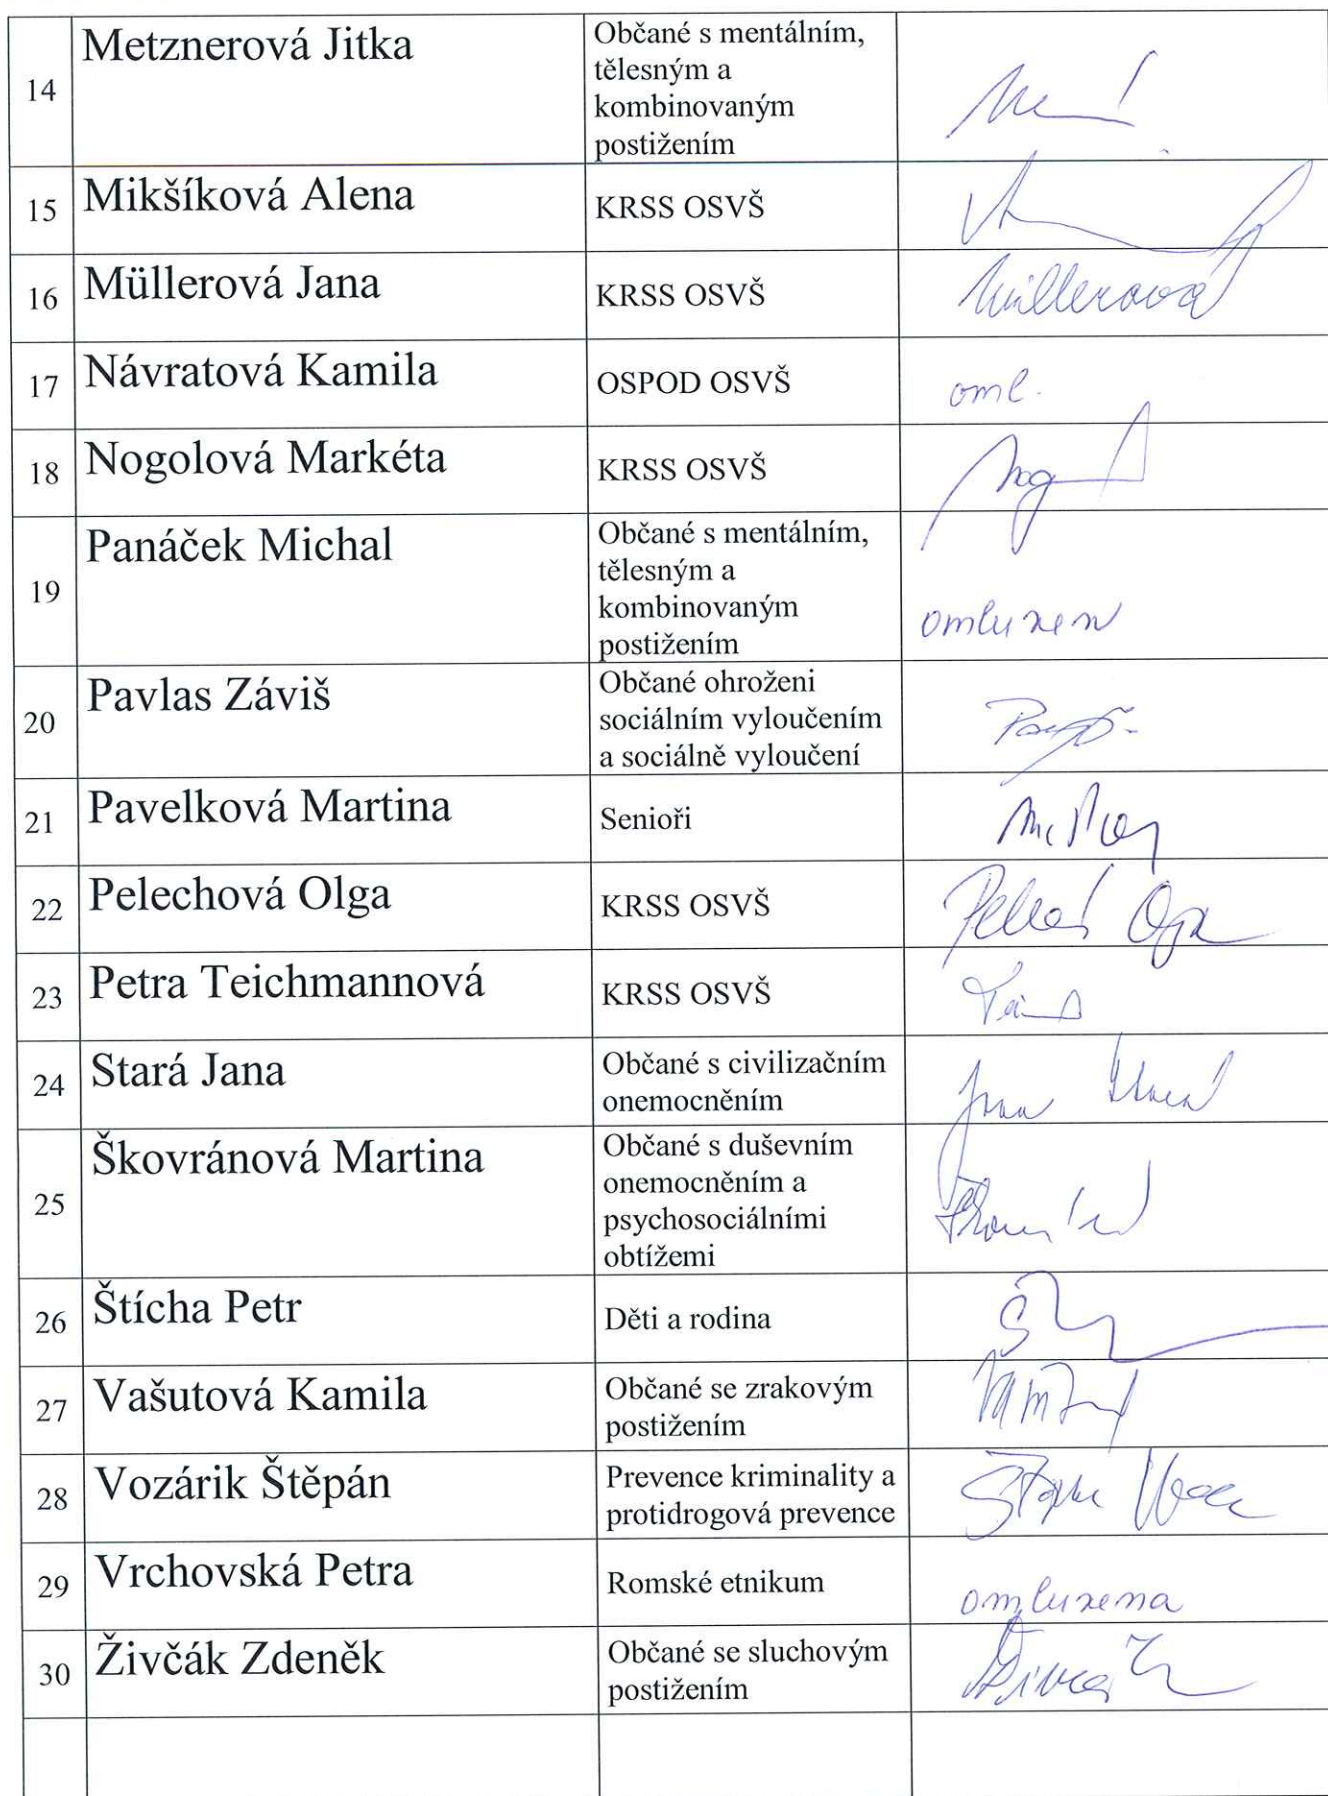 14
Metznerová Jitka
Občané s mentálním,
tělesným a
kombinovaným
postižením
15
Mikšíková Alena
KRSS OSVŠ
16
Müllerová Jana
KRSS OSVŠ
Müllerová
17
Návratová Kamila
OSPOD OSVŠ
oml.
18
Nogolová Markéta
KRSS OSVŠ
19
Panáček Michal
Občané s mentálním,
tělesným a
kombinovaným
postižením
omluven
20
Pavlas Záviš
Občané ohroženi
sociálním vyloučením
a sociálně vyloučení
21
Pavelková Martina
Senioři
22
Pelechová Olga
KRSS OSVŠ
23
Petra Teichmannová
KRSS OSVŠ
24
Stará Jana
Občané s civilizačním
onemocněním
Jana Stará
25
Škovránová Martina
Občané s duševním
onemocněním a
psychosociálními
obtížemi
26
Štícha Petr
Děti a rodina
27
Vašutová Kamila
Občané se zrakovým
postižením
28
Vozárik Štěpán
Prevence kriminality a
protidrogová prevence
29
Vrchovská Petra
Romské etnikum
omluvena
30
Živčák Zdeněk
Občané se sluchovým
postižením